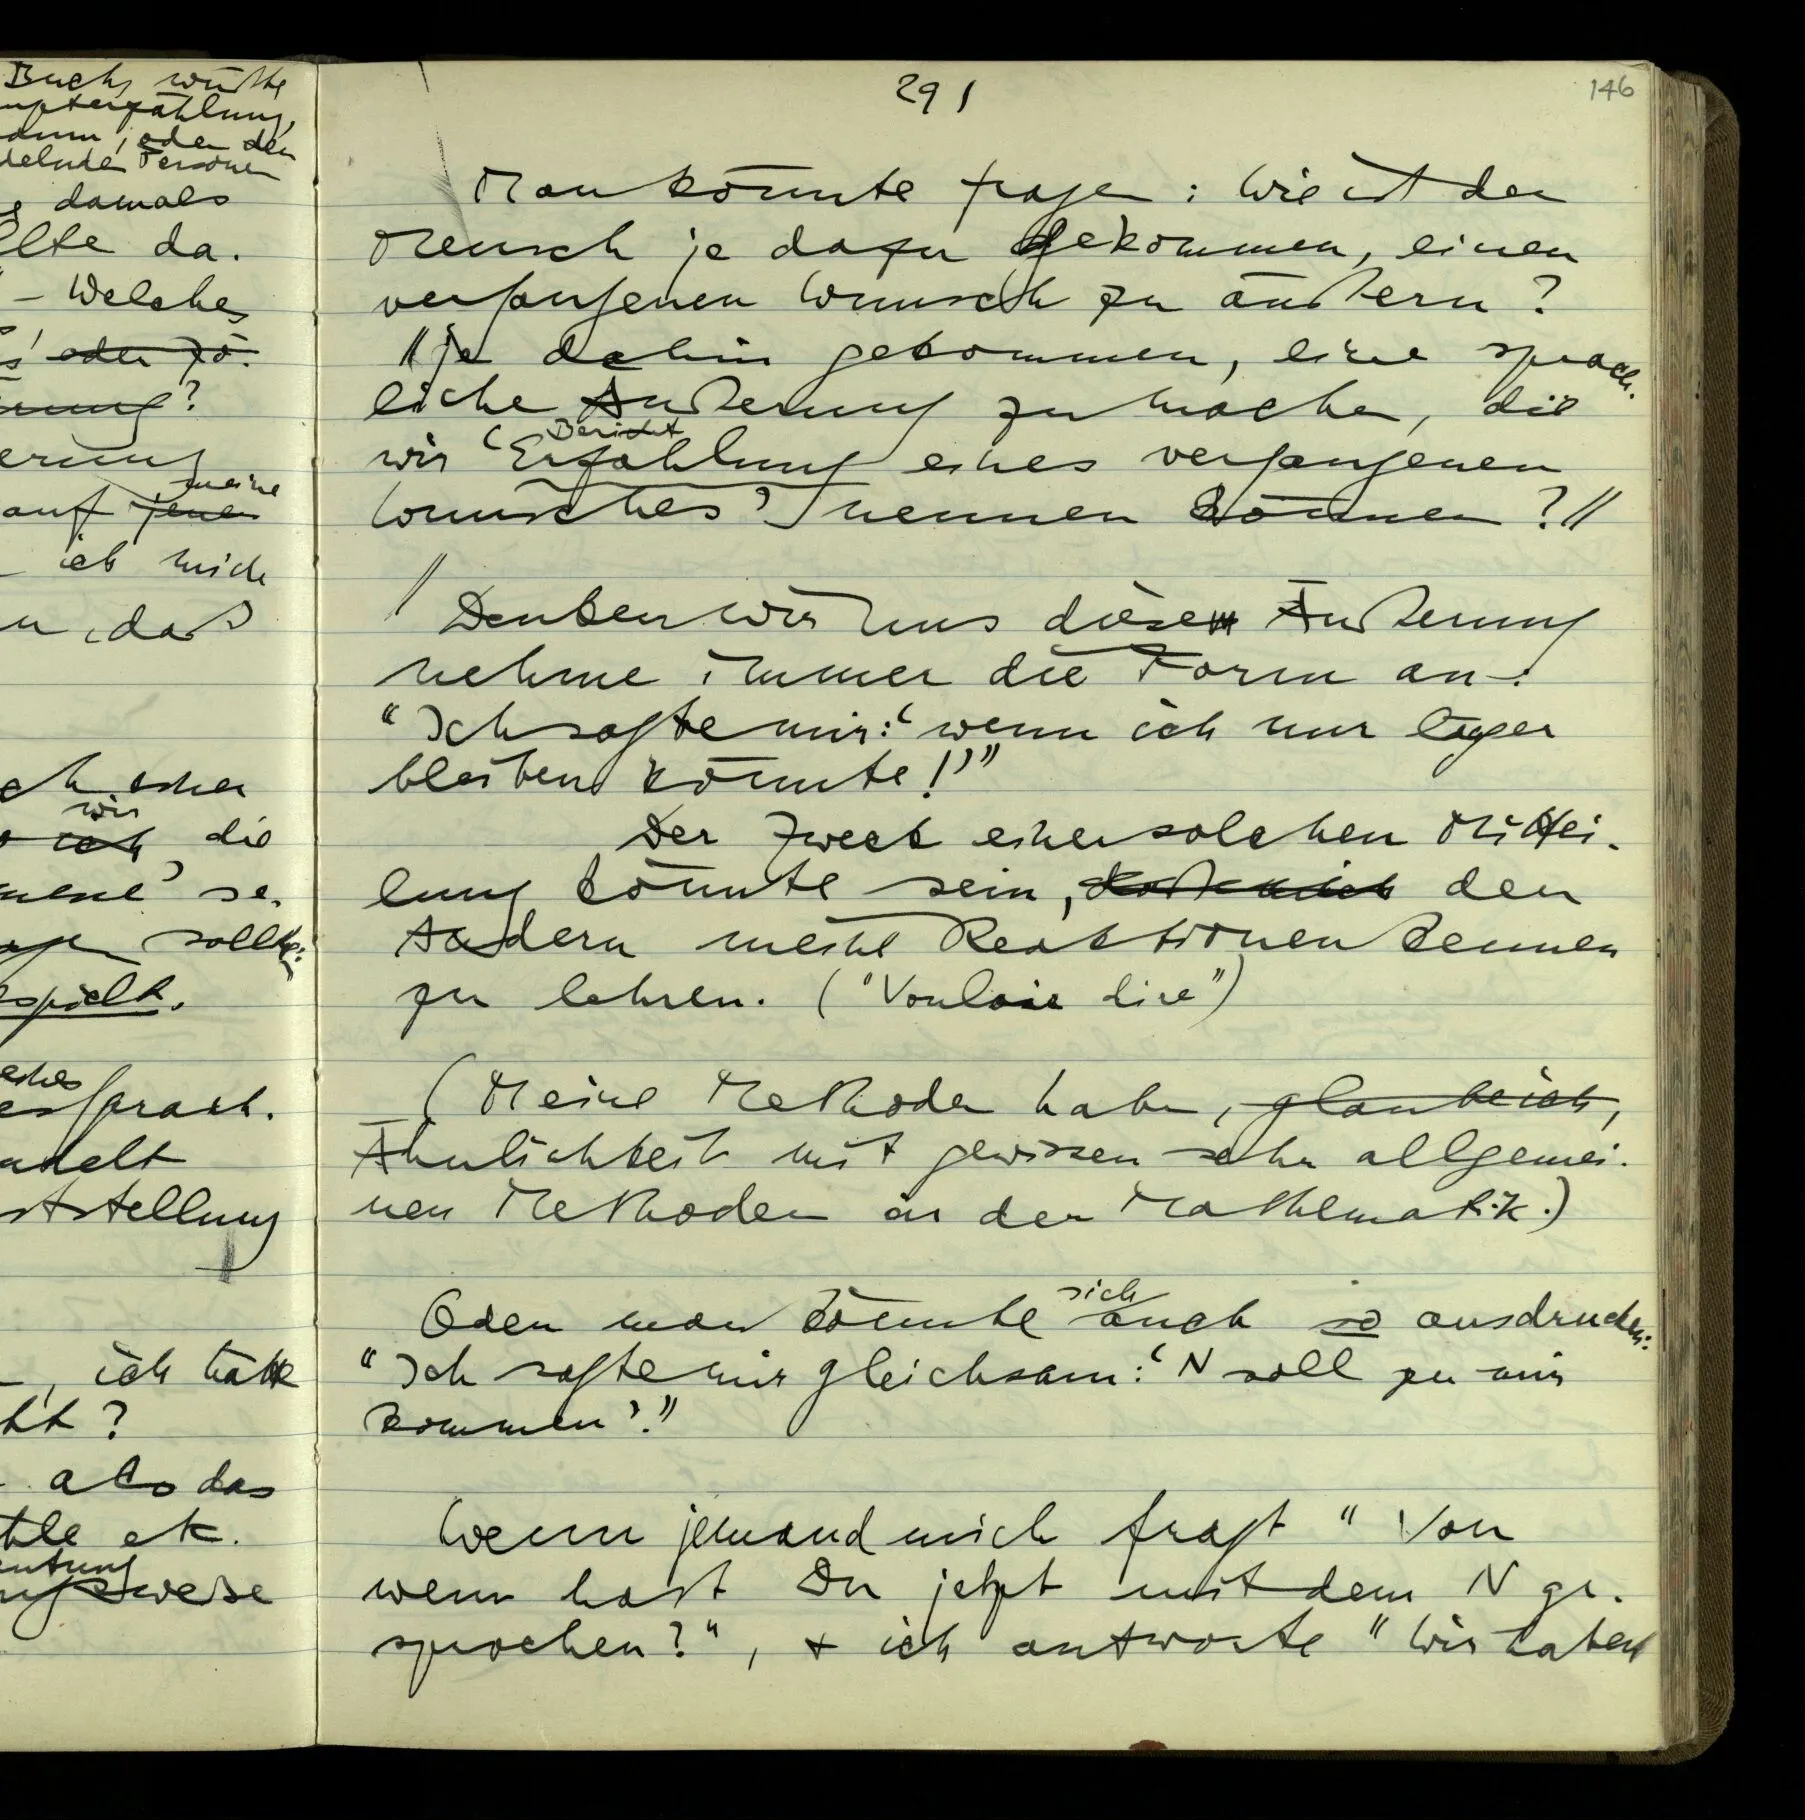 Buchs würde
aupterzählung,
dann, oder den
delnde Personen
damals
llte da.
" – Welches
oder zö-
erung?
erung
meine
auf jenen
ich mich
n, daß
ch einer
wir
ich die
mene' se-
agen sollte:
spielt.
eines
Gespräch.
ndelt
ststellung
–, ich hätte
cht?
– als das
hle etc.
eutung
ngsweise
291
146
Man könnte fragen: Wie ist der
Mensch je dazu gekommen, einen
vergangenen Wunsch zu äußern?
//je dahin gekommen, eine sprach-
liche Äußerung zu machen, die
Bericht
wir 'Erzählung eines vergangenen
Wunsches' nennen können?//
/ Denken wir uns diese Äußerung
nehme immer die Form an:
"Ich sagte mir: 'wenn ich nur länger
bleiben könnte!'"
Der Zweck einer solchen Mittei-
lung könnte sein, daß mich den
Andern meine Reaktionen kennen
zu lehren. ("Vouloir dire")
(Meine Methoden haben, glaube ich,
Ähnlichkeit mit gewissen sehr allgemei-
nen Methoden in der Mathematik.)
sich
Oder man könnte auch so ausdrücken:
"Ich sagte mir gleichsam: 'N soll zu mir
kommen'."
Wenn jemand mich fragt "Von
wem hast Du jetzt mit dem N ge-
sprochen?", + ich antworte "Wir haben